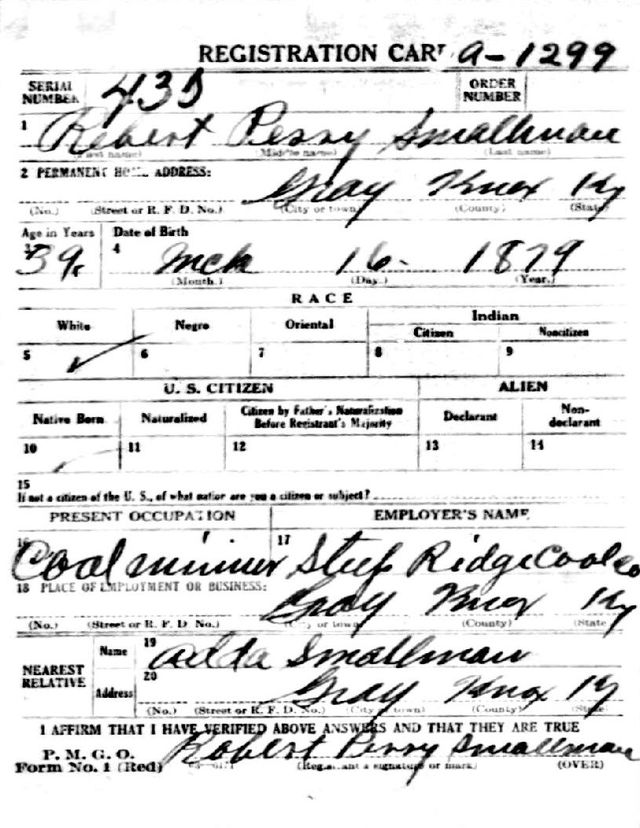 REGISTRATION CARD A-1299
SERIAL NUMBER 435 ORDER NUMBER
1 Robert Perry Smallman
(First name) (Middle name) (Last name)
2 PERMANENT HOME ADDRESS:
Gray Knox Ky
(No.) (Street or R. F. D. No.) (City or town) (County) (State)
Age in Years Date of Birth
3 39 4 Mch 16 - 1879
(Month.) (Day.) (Year.)
RACE
White Negro Oriental Indian
Citizen Noncitizen
5 6 7 8 9
U. S. CITIZEN ALIEN
Native Born Naturalized Citizen by Father's Naturalization Before Registrant's Majority Declarant Non-declarant
10 11 12 13 14
15
If not a citizen of the U. S., of what nation are you a citizen or subject?
PRESENT OCCUPATION EMPLOYER'S NAME
16 Coal miner 17 Steep Ridge Coal Co
18 PLACE OF EMPLOYMENT OR BUSINESS:
Gray Knox Ky
(No.) (Street or R. F. D. No.) (City or town) (County) (State)
NEAREST RELATIVE Name 19 Adda Smallman
Address 20 Gray Knox Ky
(No.) (Street or R. F. D. No.) (City or town) (County) (State)
I AFFIRM THAT I HAVE VERIFIED ABOVE ANSWERS AND THAT THEY ARE TRUE
P. M. G. O.
Form No. 1 (Red) Robert Perry Smallman
(Registrant's signature or mark) (OVER)